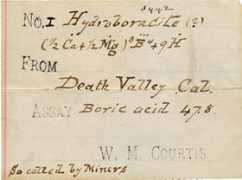 No. I Hydroboracite (?)
(½ Ca + ½ Mg)³ B⁴ + 9 H
FROM
Death Valley Cal.
ASSAY Boric acid 47.8.
W. M. CURTIS
So called by Miners